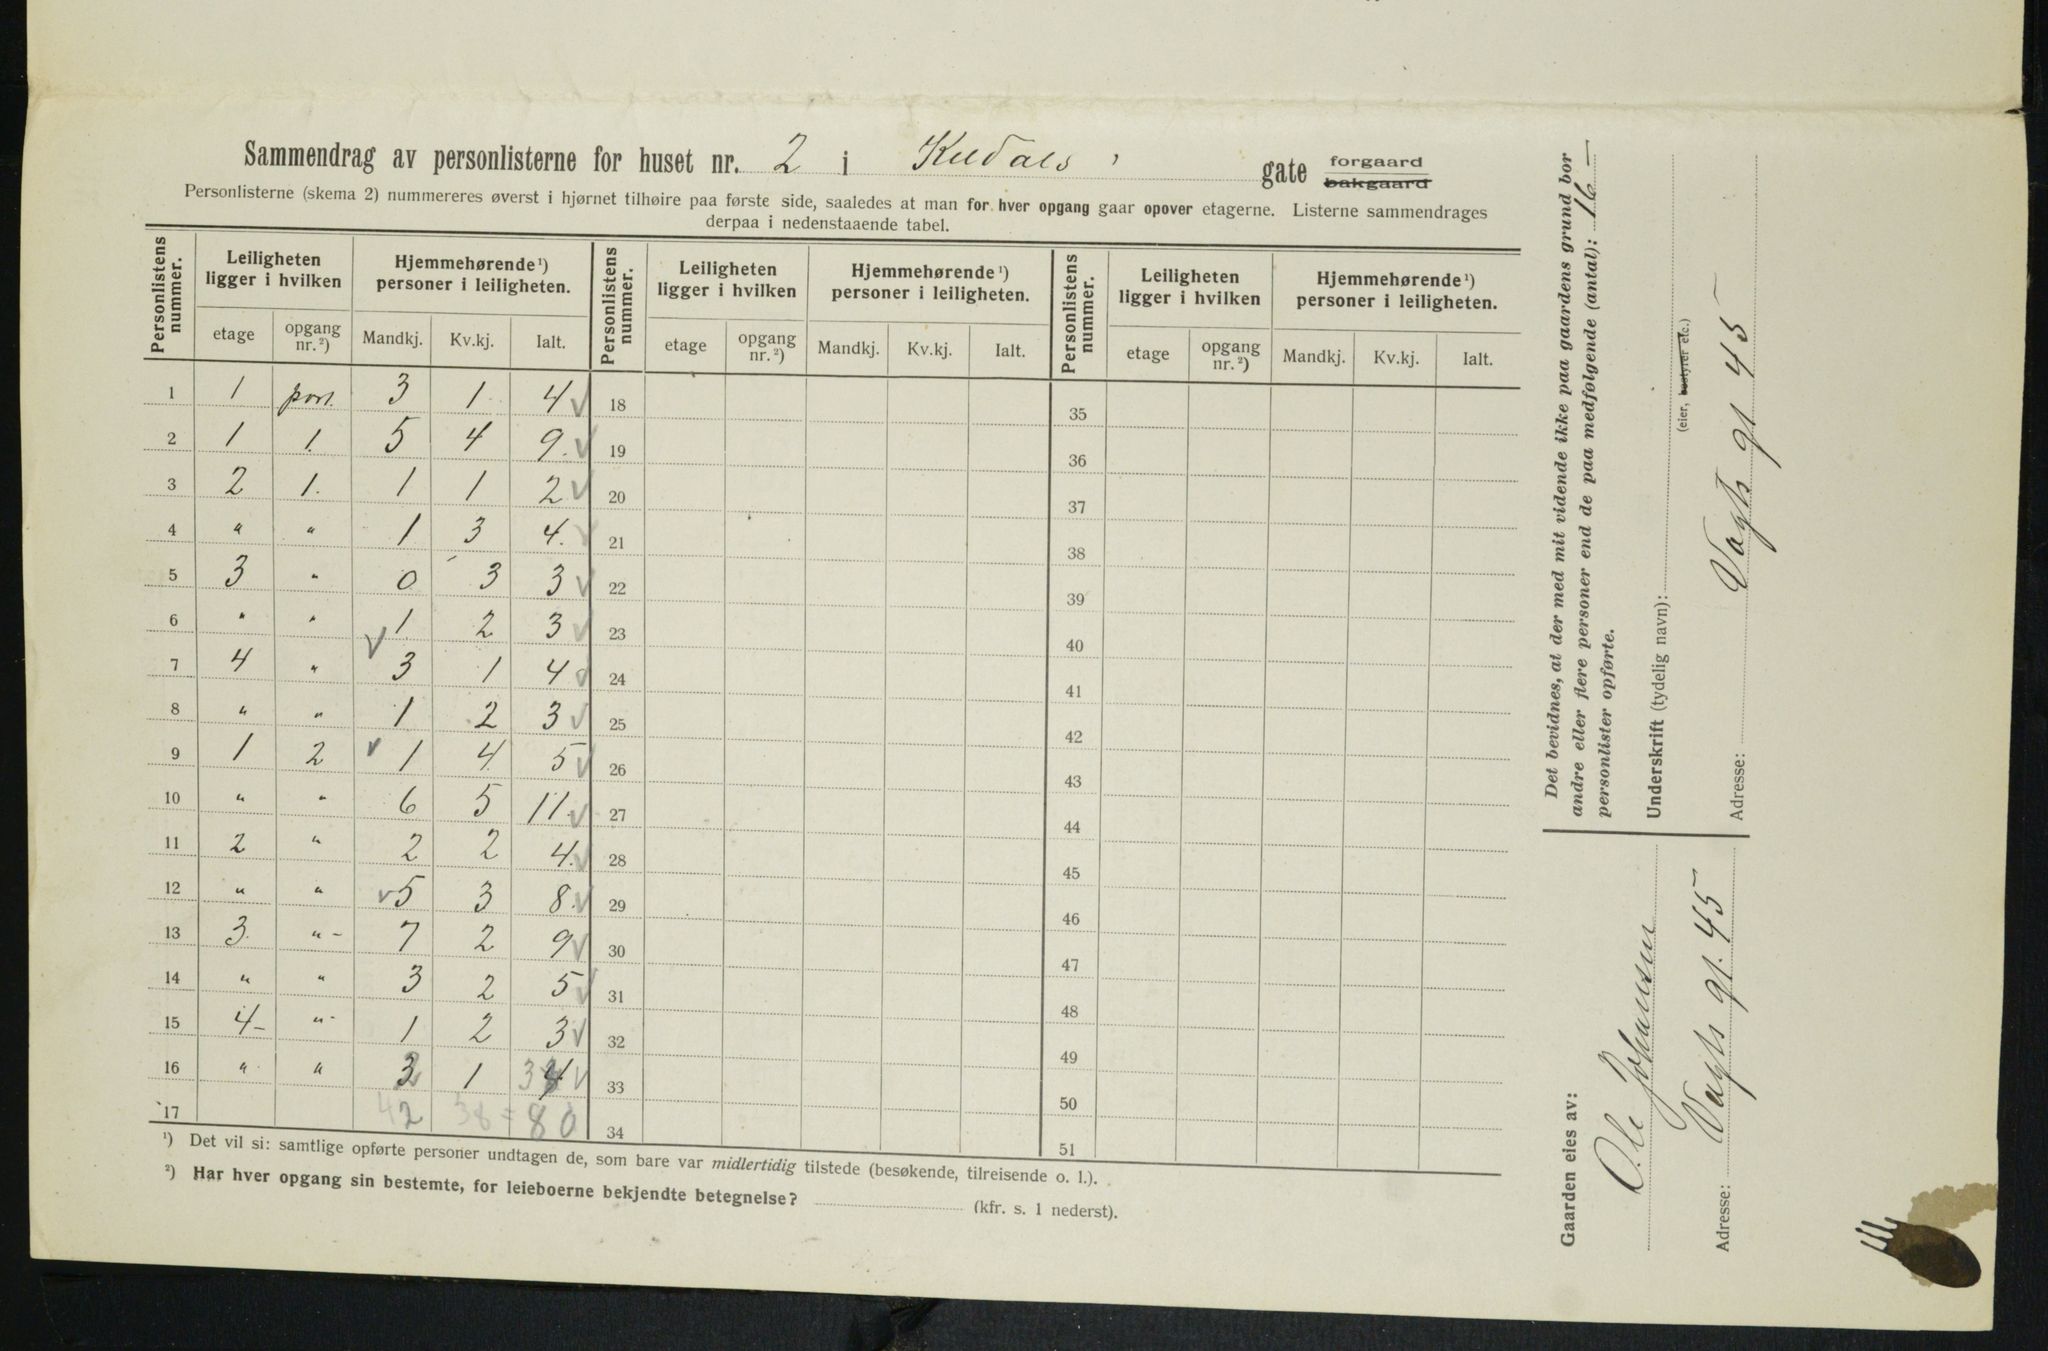 Sammendrag av personlisterne for huset nr. 2 i Kildals gate forgaard bakgaard
Personlisterne (skema 2) nummereres øverst i hjørnet tilhøire paa første side, saaledes at man for hver opgang gaar opover etagerne. Listerne sammendrages
derpaa i nedenstaaende tabel.
Personlistens nummer. Leiligheten ligger i hvilken Hjemmehørende ¹) personer i leiligheten. Personlistens nummer. Leiligheten ligger i hvilken Hjemmehørende ¹) personer i leiligheten. Personlistens nummer. Leiligheten ligger i hvilken Hjemmehørende ¹) personer i leiligheten.
etage opgang nr. ²) Mandkj. Kv.kj. Ialt. etage opgang nr. ²) Mandkj. Kv.kj. Ialt. etage opgang nr. ²) Mandkj. Kv.kj. Ialt.
1 1 port. 3 1 4 18 35
2 1 1. 5 4 9. 19 36
3 2 1. 1 1 2 20 37
4 " " 1 3 4. 21 38
5 3 " 0 3 3 22 39
6 " " 1. 2 3 23 40
7 4 " 3 1 4 24 41
8 " " 1 2 3 25 42
9 1 2 1 4. 5 26 43
10 " " 6 5 11. 27 44
11 2 " 2 2 4. 28 45
12 " " 5 3 8. 29 46
13 3. " - 7 2 9 30 47
14 " " 3 2 5 31 48
15 4 - " - 1 2 3 32 49
16 " " 3 1 3 4 33 50
17 42 38 = 80 34 51
¹) Det vil si: samtlige opførte personer undtagen de, som bare var midlertidig tilstede (besøkende, tilreisende o. l.).
²) Har hver opgang sin bestemte, for leieboerne bekjendte betegnelse? (kfr. s. 1 nederst).
Det bevidnes, at der med mit vidende ikke paa gaardens grund bor
andre eller flere personer end de paa medfølgende (antal): 16 —
personlister opførte.
Underskrift (tydelig navn):
(eier, bestyrer etc.)
Adresse: Vogts gt 45
Gaarden eies av:
Ole Johansen
Adresse: Vogts gt. 45